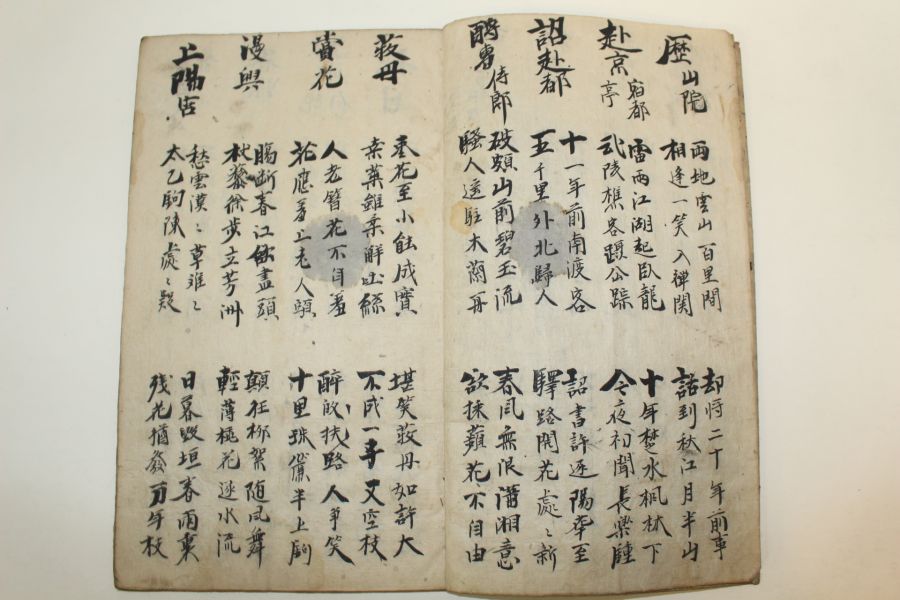 歷山院
兩地雲山百里間
相逢一笑入禪關
却將二十年前事
話到秋江月半山
赴京 宿都亭
雷雨江湖起臥龍
武陵樵客躡仙蹤
十年楚水楓林下
今夜初聞長樂鍾
詔赴都
十一年前南渡客
五千里外北歸人
詔書許逐陽和至
驛路開花處〻新
酬曹侍郎
破額山前碧玉流
騷人遙駐木蘭舟
春風無限瀟湘意
欲採蘋花不自由
牡丹
棗花至小能成實
桑葉雖柔解吐絲
堪笑牡丹如許大
不成一事又空枝
賞花
人老簪花不自羞
花應羞上老人頭
醉欹扶路人爭笑
十里珠簾半上鉤
漫興
腸斷春江欲盡頭
杖藜徐步立芳洲
顛狂柳絮隨風舞
輕薄桃花逐水流
上陽宮
愁雲漠〻草離〻
太乙鉤陳處〻疑
日暮毀垣春雨裏
殘花猶發萬年枝